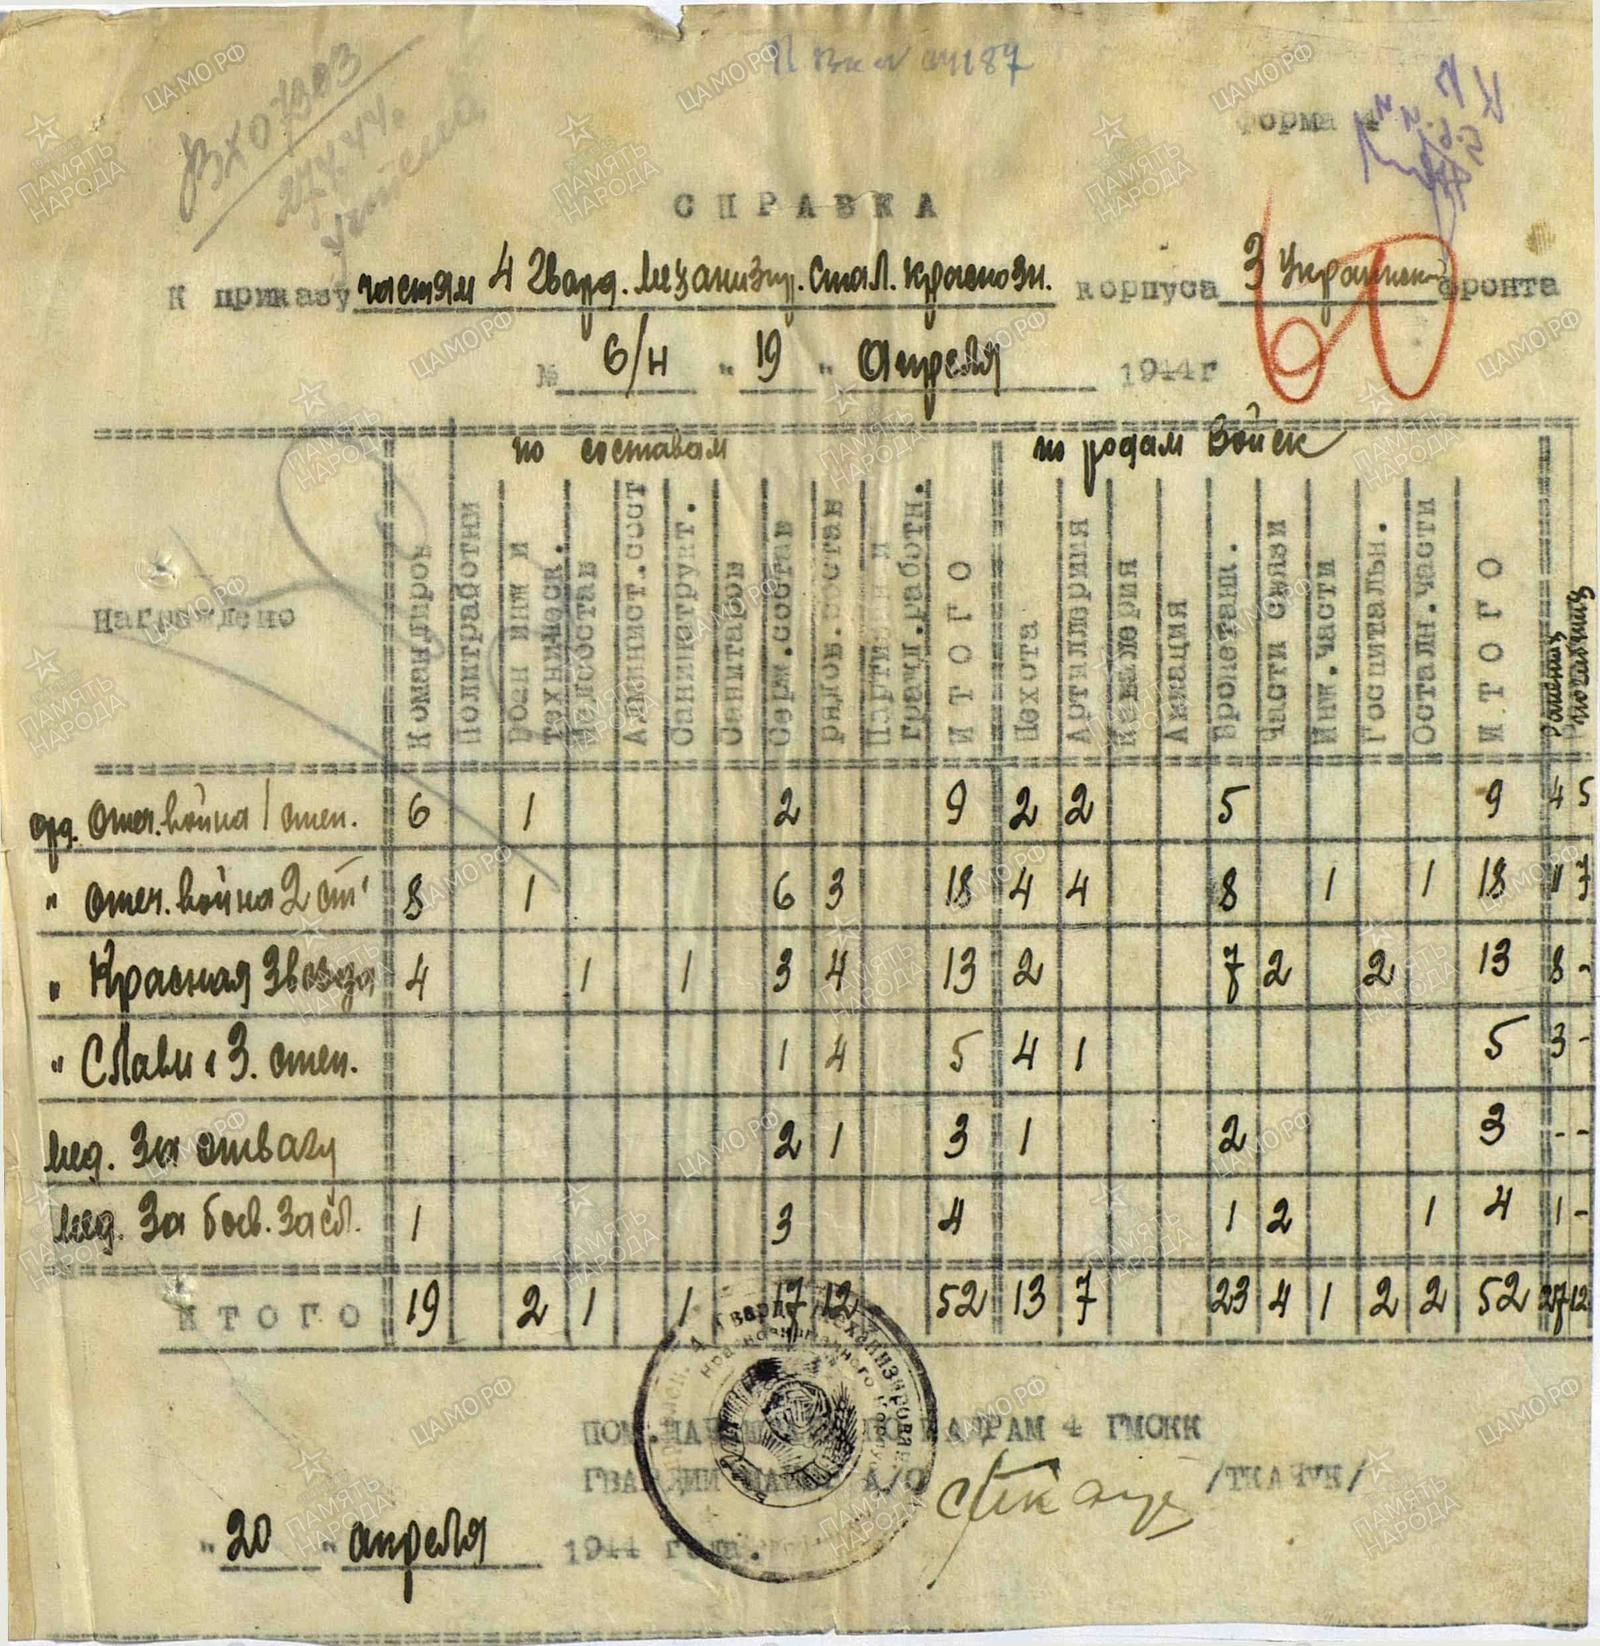 Вх 07303
27.4.44.
Форма 4
СПРАВКА
К приказу частям 4 Гвард. Механизир. Стал. Краснозн. корпуса 3 Украинск фронта
№ б/н "19" Апреля 1944г
по составам по родам войск
Награждено Командиров Политработни Воен инж и техническ. Медсостав Админист. сост Санинструкт. Санитаров Серж. состав Рядов. состав Партийн и гражд. работн. ИТОГО Пехота Артиллерия Кавалерия Авиация Бронетанк. Части связи Инж. части Госпитальн. Остальн. части ИТОГО
орд. Отеч. война 1 степ. 6 1 2 9 2 2 5 9 4 5
" Отеч. война 2 ст 8 1 6 3 18 4 4 8 1 1 18 11 7
" Красная Звезда 4 1 1 3 4 13 2 7 2 2 13 8 -
" Славы 3. степ. 1 4 5 4 1 5 3 -
мед. За отвагу 2 1 3 1 2 3 - -
мед. За боев. засл. 1 3 4 1 2 1 4 1 -
ИТОГО 19 2 1 1 17 12 52 13 7 23 4 1 2 2 52 27 12
ПО КАДРАМ 4 ГМСКК
ГВАРДИИ А/С /ТКАЧУК/
"20" апреля 1944 года.